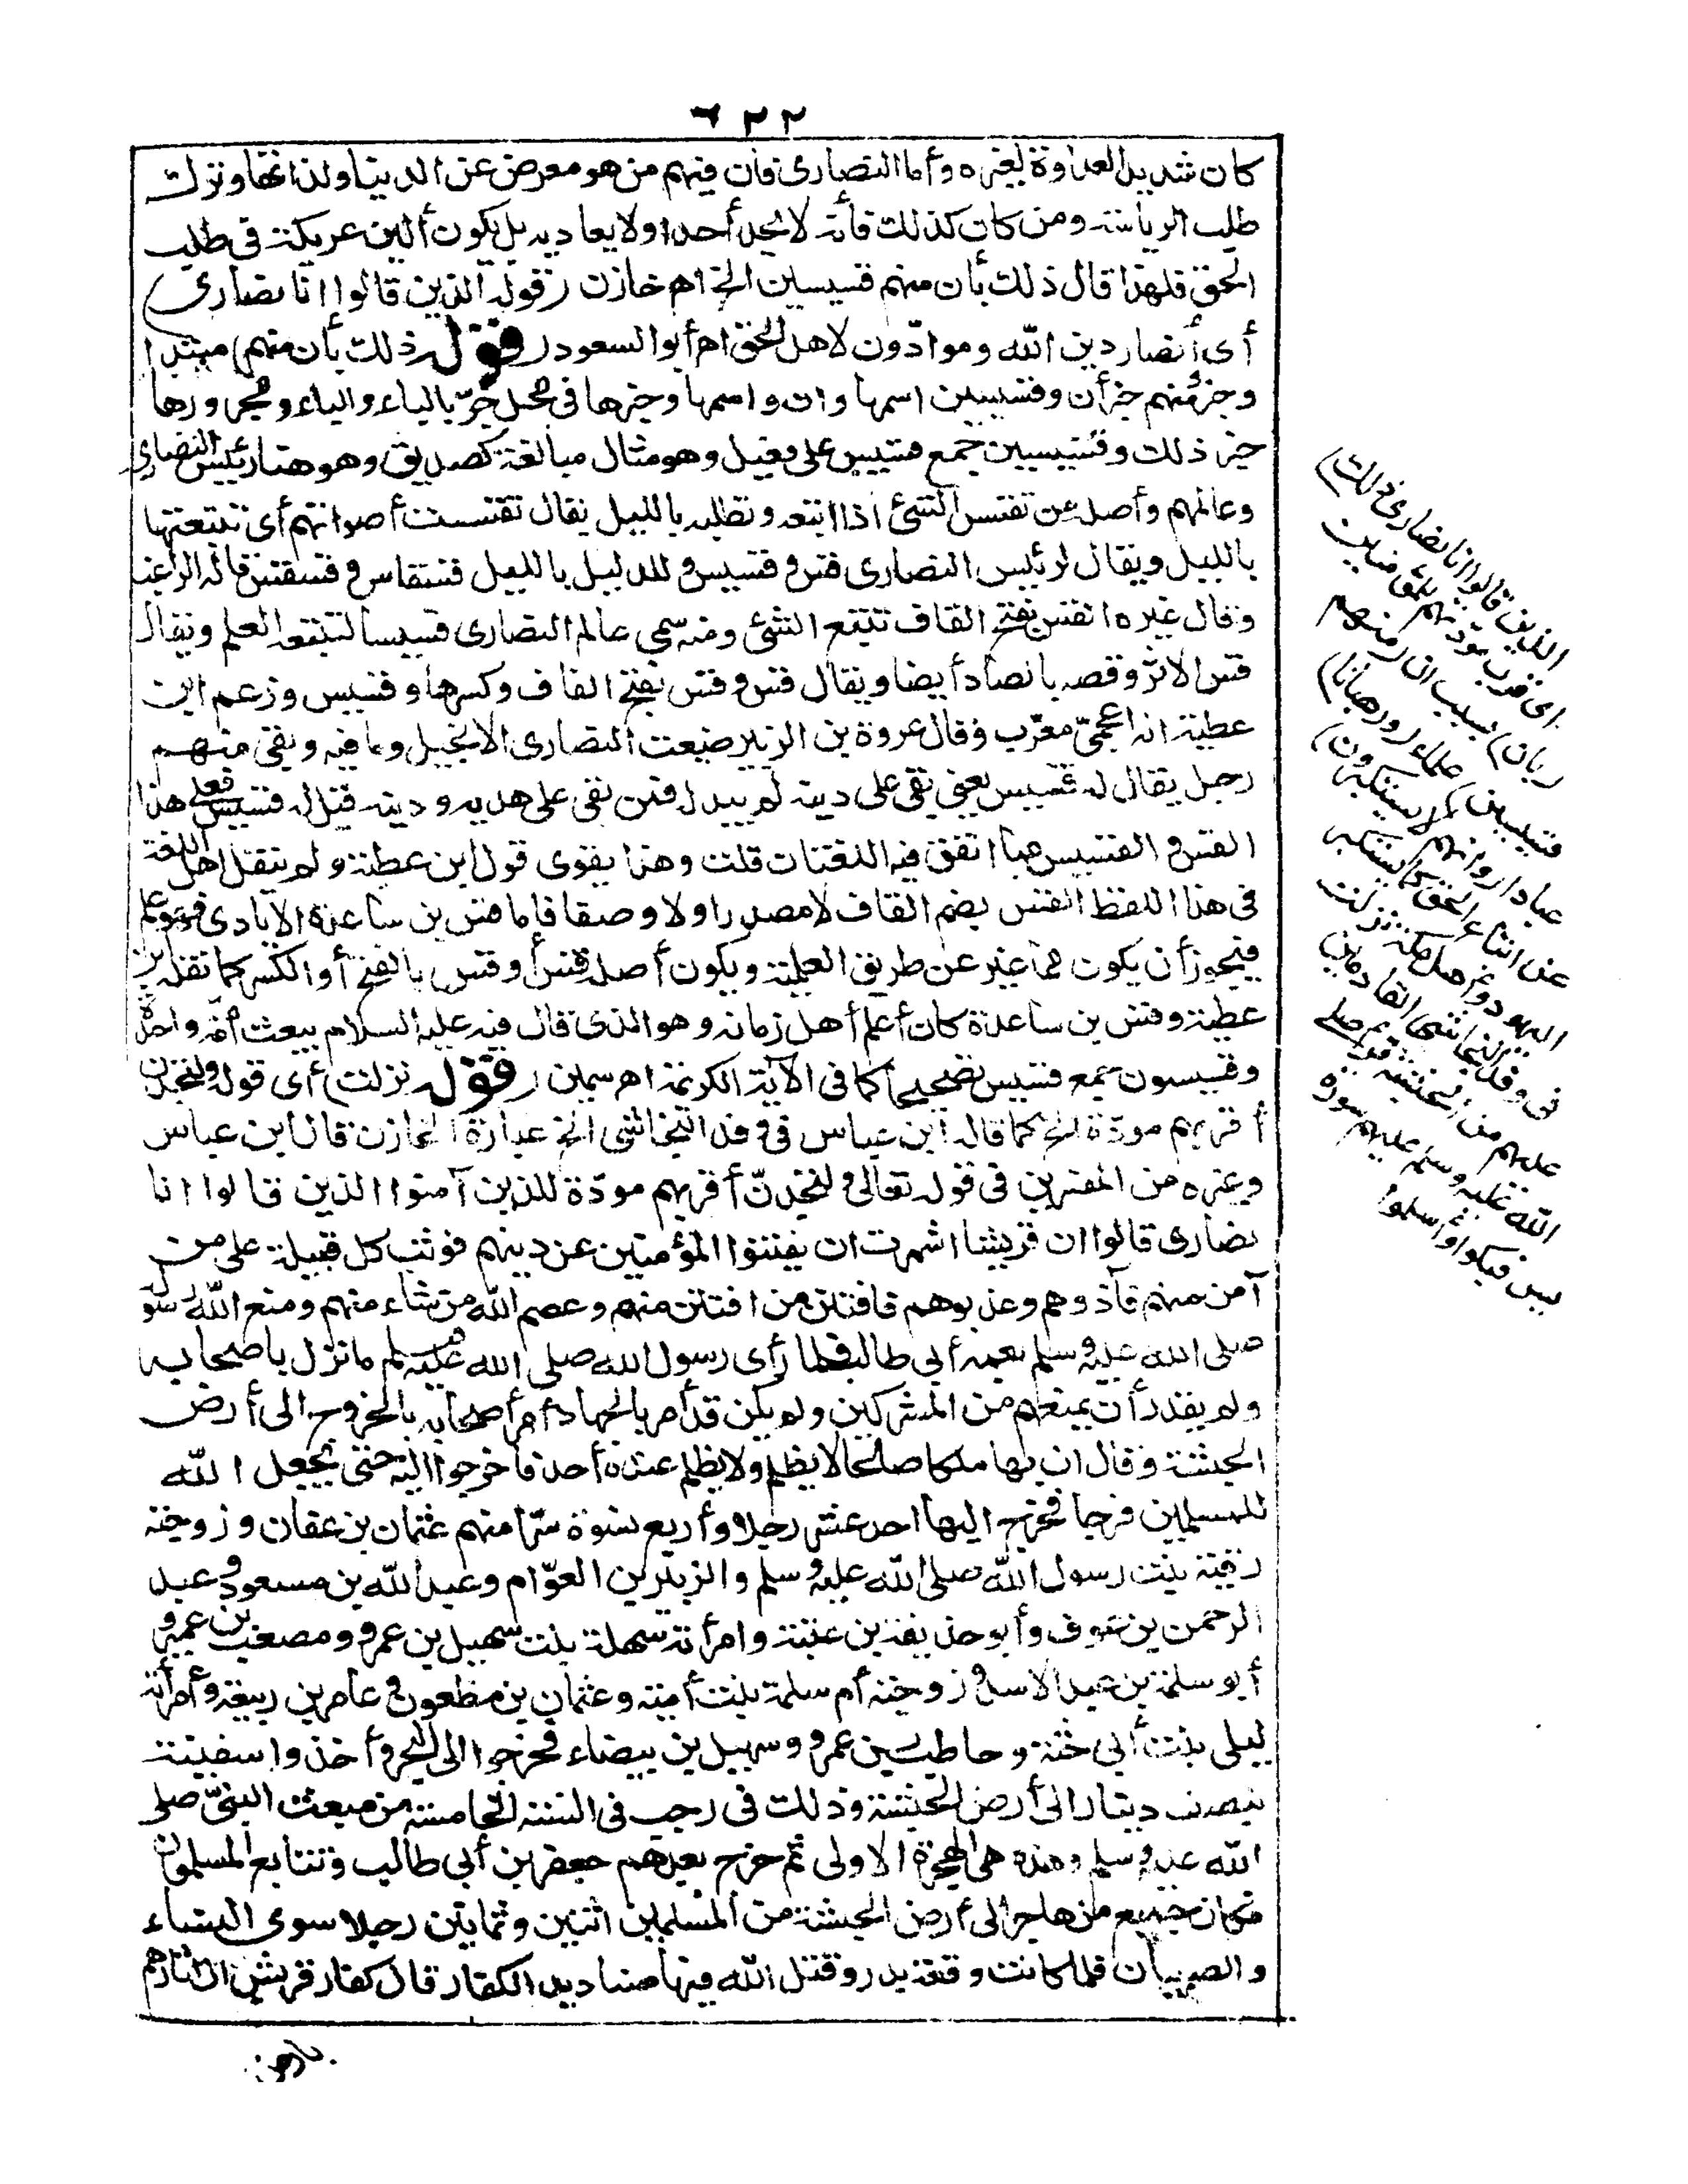 ٦٢٢
كان شديد العداوة لغيره وأما النصارى فان فيهم من هو معرض عن الدنيا ولذاتها وترك
طلب الرياسة ومن كان كذلك فأنه لا يحد أحدا ولا يعاديه بل يكون ألين عريكة في طلب
الحق فلهذا قال ذلك بأن منهم قسيسين الخ اه خازن (قوله الذين قالوا انا نصارى)
أى أنصار دين الله وموادّون لاهل الحق اه أبو السعود (قوله ذلك بأن منهم) مبتدا
وخبر ومنهم خبر أن وقسيسين اسمها وان واسمها وخبرها في محل جرّ بالباء والباء ومجرورها
خبر ذلك وقسيسين جمع قسيس على فعيل وهو مثال مبالغة كصديق وهو هنا رئيس النصارى
وعالمهم وأصله من تقسس الشئ اذا اتبعه وتطلبه بالليل يقال تقسست أصواتهم أى تتبعتها
بالليل ويقال لرئيس النصارى قس وقسيس وللدليل بالليل قسقاس وقسقس قاله الراغب
وقال غيره القس بفتح القاف تتبع الشئ ومنه سمى عالم النصارى قسيسا لتتبعه العلم ويقال
قس الاثر وقصه بالصاد أيضا ويقال قس وقس بفتح القاف وكسرها وقسيس وزعم ابن
عطية انه اعجمىّ معرّب وقال عروة بن الزبير ضيعت النصارى الانجيل وما فيه وبقى منهم
رجل يقال له قسيس يعنى بقى على دينه لم يبدله فمن بقى على هديه ودينه قيل له قسيس فعلى هذا
القس والقسيس مما اتفق فيه اللغتان قلت وهذا يقوى قول ابن عطية ولم ينقل اهل اللغة
في هذا اللفظ القس بضم القاف لا مصدرا ولا وصفا فاما قس بن ساعدة الايادى فهو علم
فيجوز أن يكون مما غير عن طريق العلمية ويكون أصله قس أو قس بالفتح أو الكسر كما نقله ابن
عطية وقس بن ساعدة كان أعلم أهل زمانه وهو الذى قال فيه عليه السلام يبعث أمة واحدة
وقسيسون جمع قسيس تصحيحا كما في الآية الكريمة اه سمين (قوله نزلت) أى قوله ولتجدن
أقربهم مودّة الخ كما قاله ابن عباس في وفد النجاشى الخ عبارة الخازن قال ابن عباس
وغيره من المفسرين في قوله تعالى ولتجدنّ أقربهم مودّة للذين آمنوا الذين قالوا انا
نصارى قالوا ان قريشا ائتمرت ان يفتنوا المؤمنين عن دينهم فوثب كل قبيلة على من
آمن منهم فآذوهم وعذبوهم فافتتن من افتتن منهم وعصم الله من شاء منهم ومنع الله رسوله
صلى الله عليه وسلم بعمه أبى طالب فلما رأى رسول الله صلى الله عليه وسلم ما نزل باصحابه
ولم يقدر أن يمنعهم من المشركين ولم يكن قد أمر بالجهاد أمر أصحابه بالخروج الى أرض
الحبشة وقال ان بها ملكا صالحا لا يظلم ولا يظلم عنده أحد فاخرجوا اليه حتى يجعل الله
للمسلمين فرجا فخرج اليها احد عشر رجلا وأربع نسوة سرّا منهم عثمان بن عفان وزوجته
رقية بنت رسول الله صلى الله عليه وسلم والزبير بن العوّام وعبد الله بن مسعود وعبد
الرحمن بن عوف وأبو حذيفة بن عتبة وامرأته سهلة بنت سهيل بن عمرو ومصعب بن عمير و
أبو سلمة بن عبد الاسد وزوجته أم سلمة بنت أمية وعثمان بن مظعون وعامر بن ربيعة وامرأته
ليلى بنت أبى خثمة وحاطب بن عمرو وسهيل بن بيضاء فخرجوا الى البحر وأخذوا سفينة
بنصف دينار الى أرض الحبشة وذلك في رجب في السنة الخامسة من مبعث النبىّ صلى
الله عليه وسلم وهذه هى الهجرة الاولى ثم خرج بعدهم جعفر بن أبى طالب وتتابع المسلمون
فكان جميع من هاجر الى أرض الحبشة من المسلمين اثنين وثمانين رجلا سوى النساء
والصبيان فلما كانت وقعة بدر وقتل الله فيها صناديد الكفار قال كفار قريش ان ثاركم
الذين قالوا انا نصارى ذلك)
اى قرب مودتهم للمؤمنين
(بان) بسبب ان (منهم
قسيسين) علماء (ورهبانا)
عبادا (وانهم لا يستكبرون)
عن اتباع الحق كما يستكبر
اليهود وأهل مكة نزلت
في وفد النجاشى القادمين
عليهم من الحبشة قرأ صلى
الله عليه وسلم عليهم سورة
يس فبكوا وأسلموا
بارض